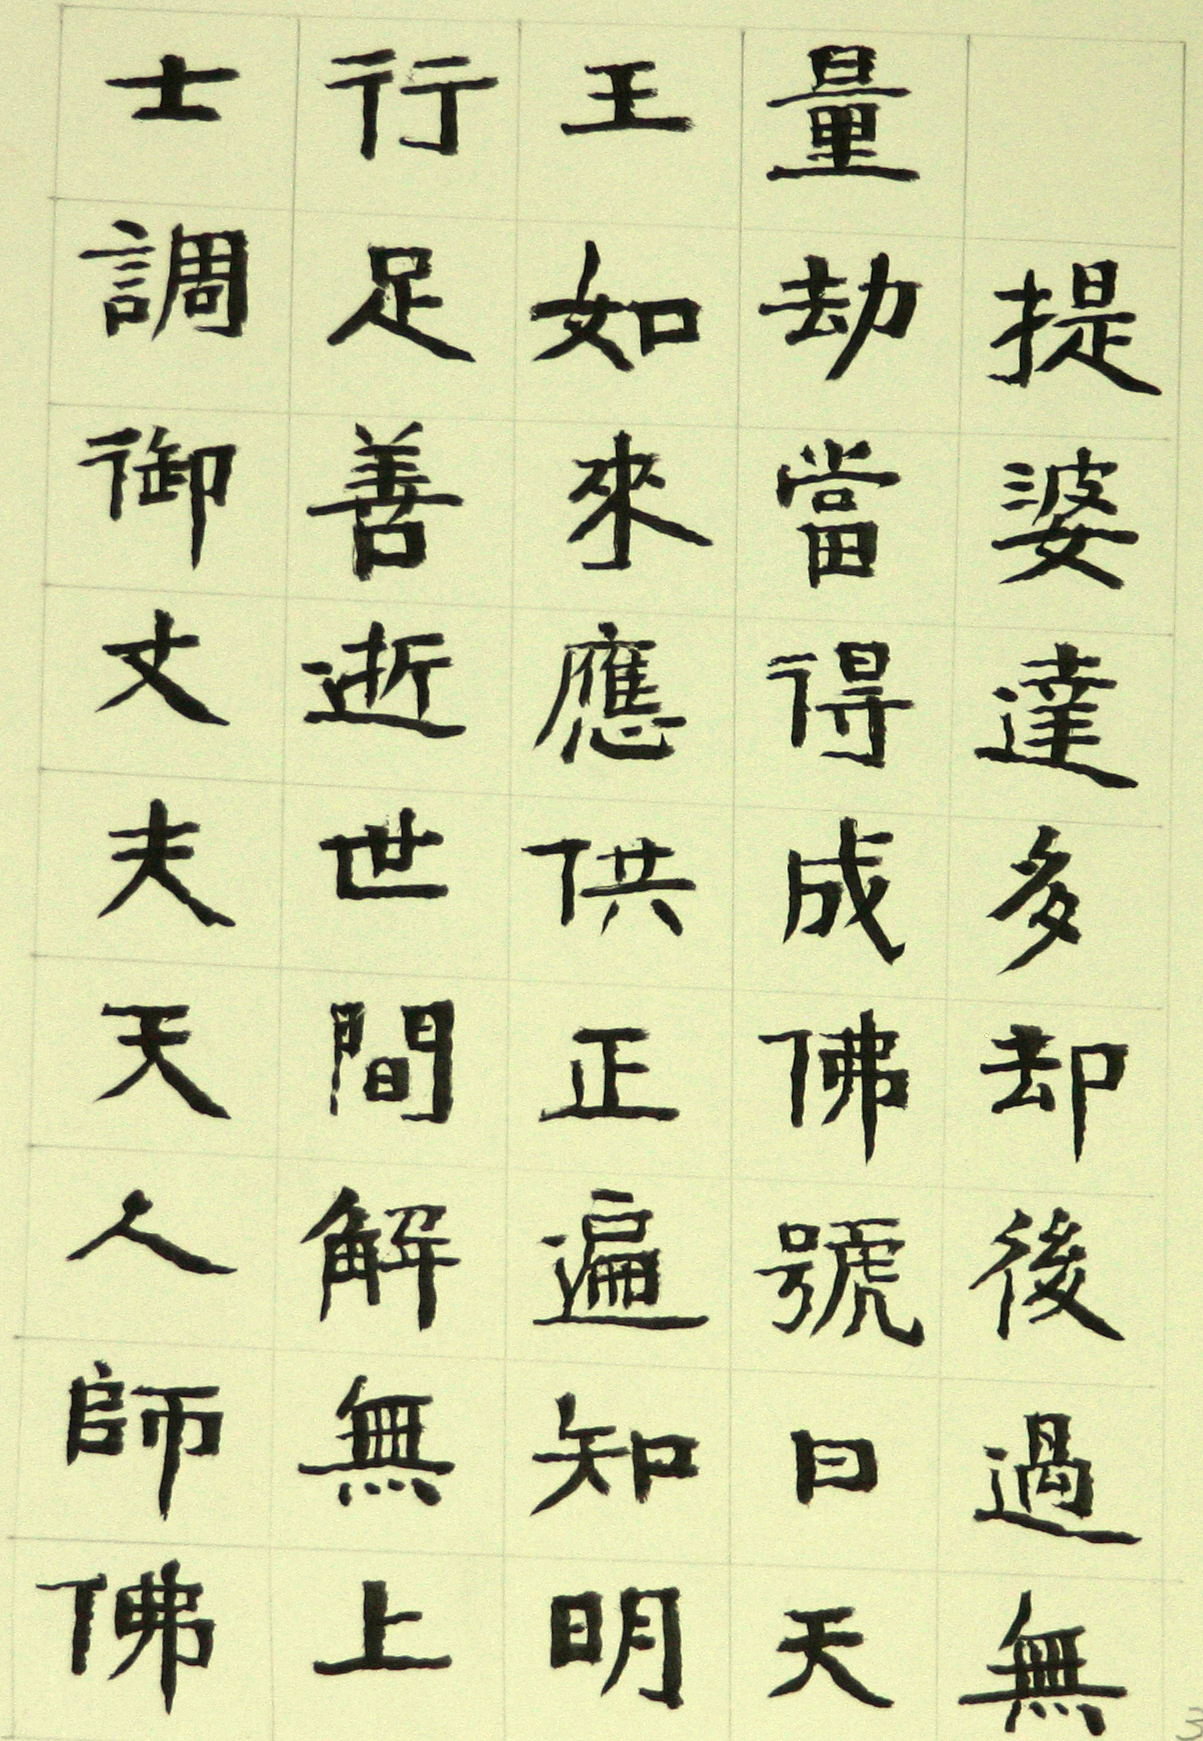 提婆達多却後過無
量劫當得成佛號曰天
王如來應供正遍知明
行足善逝世間解無上
士調御丈夫天人師佛
3